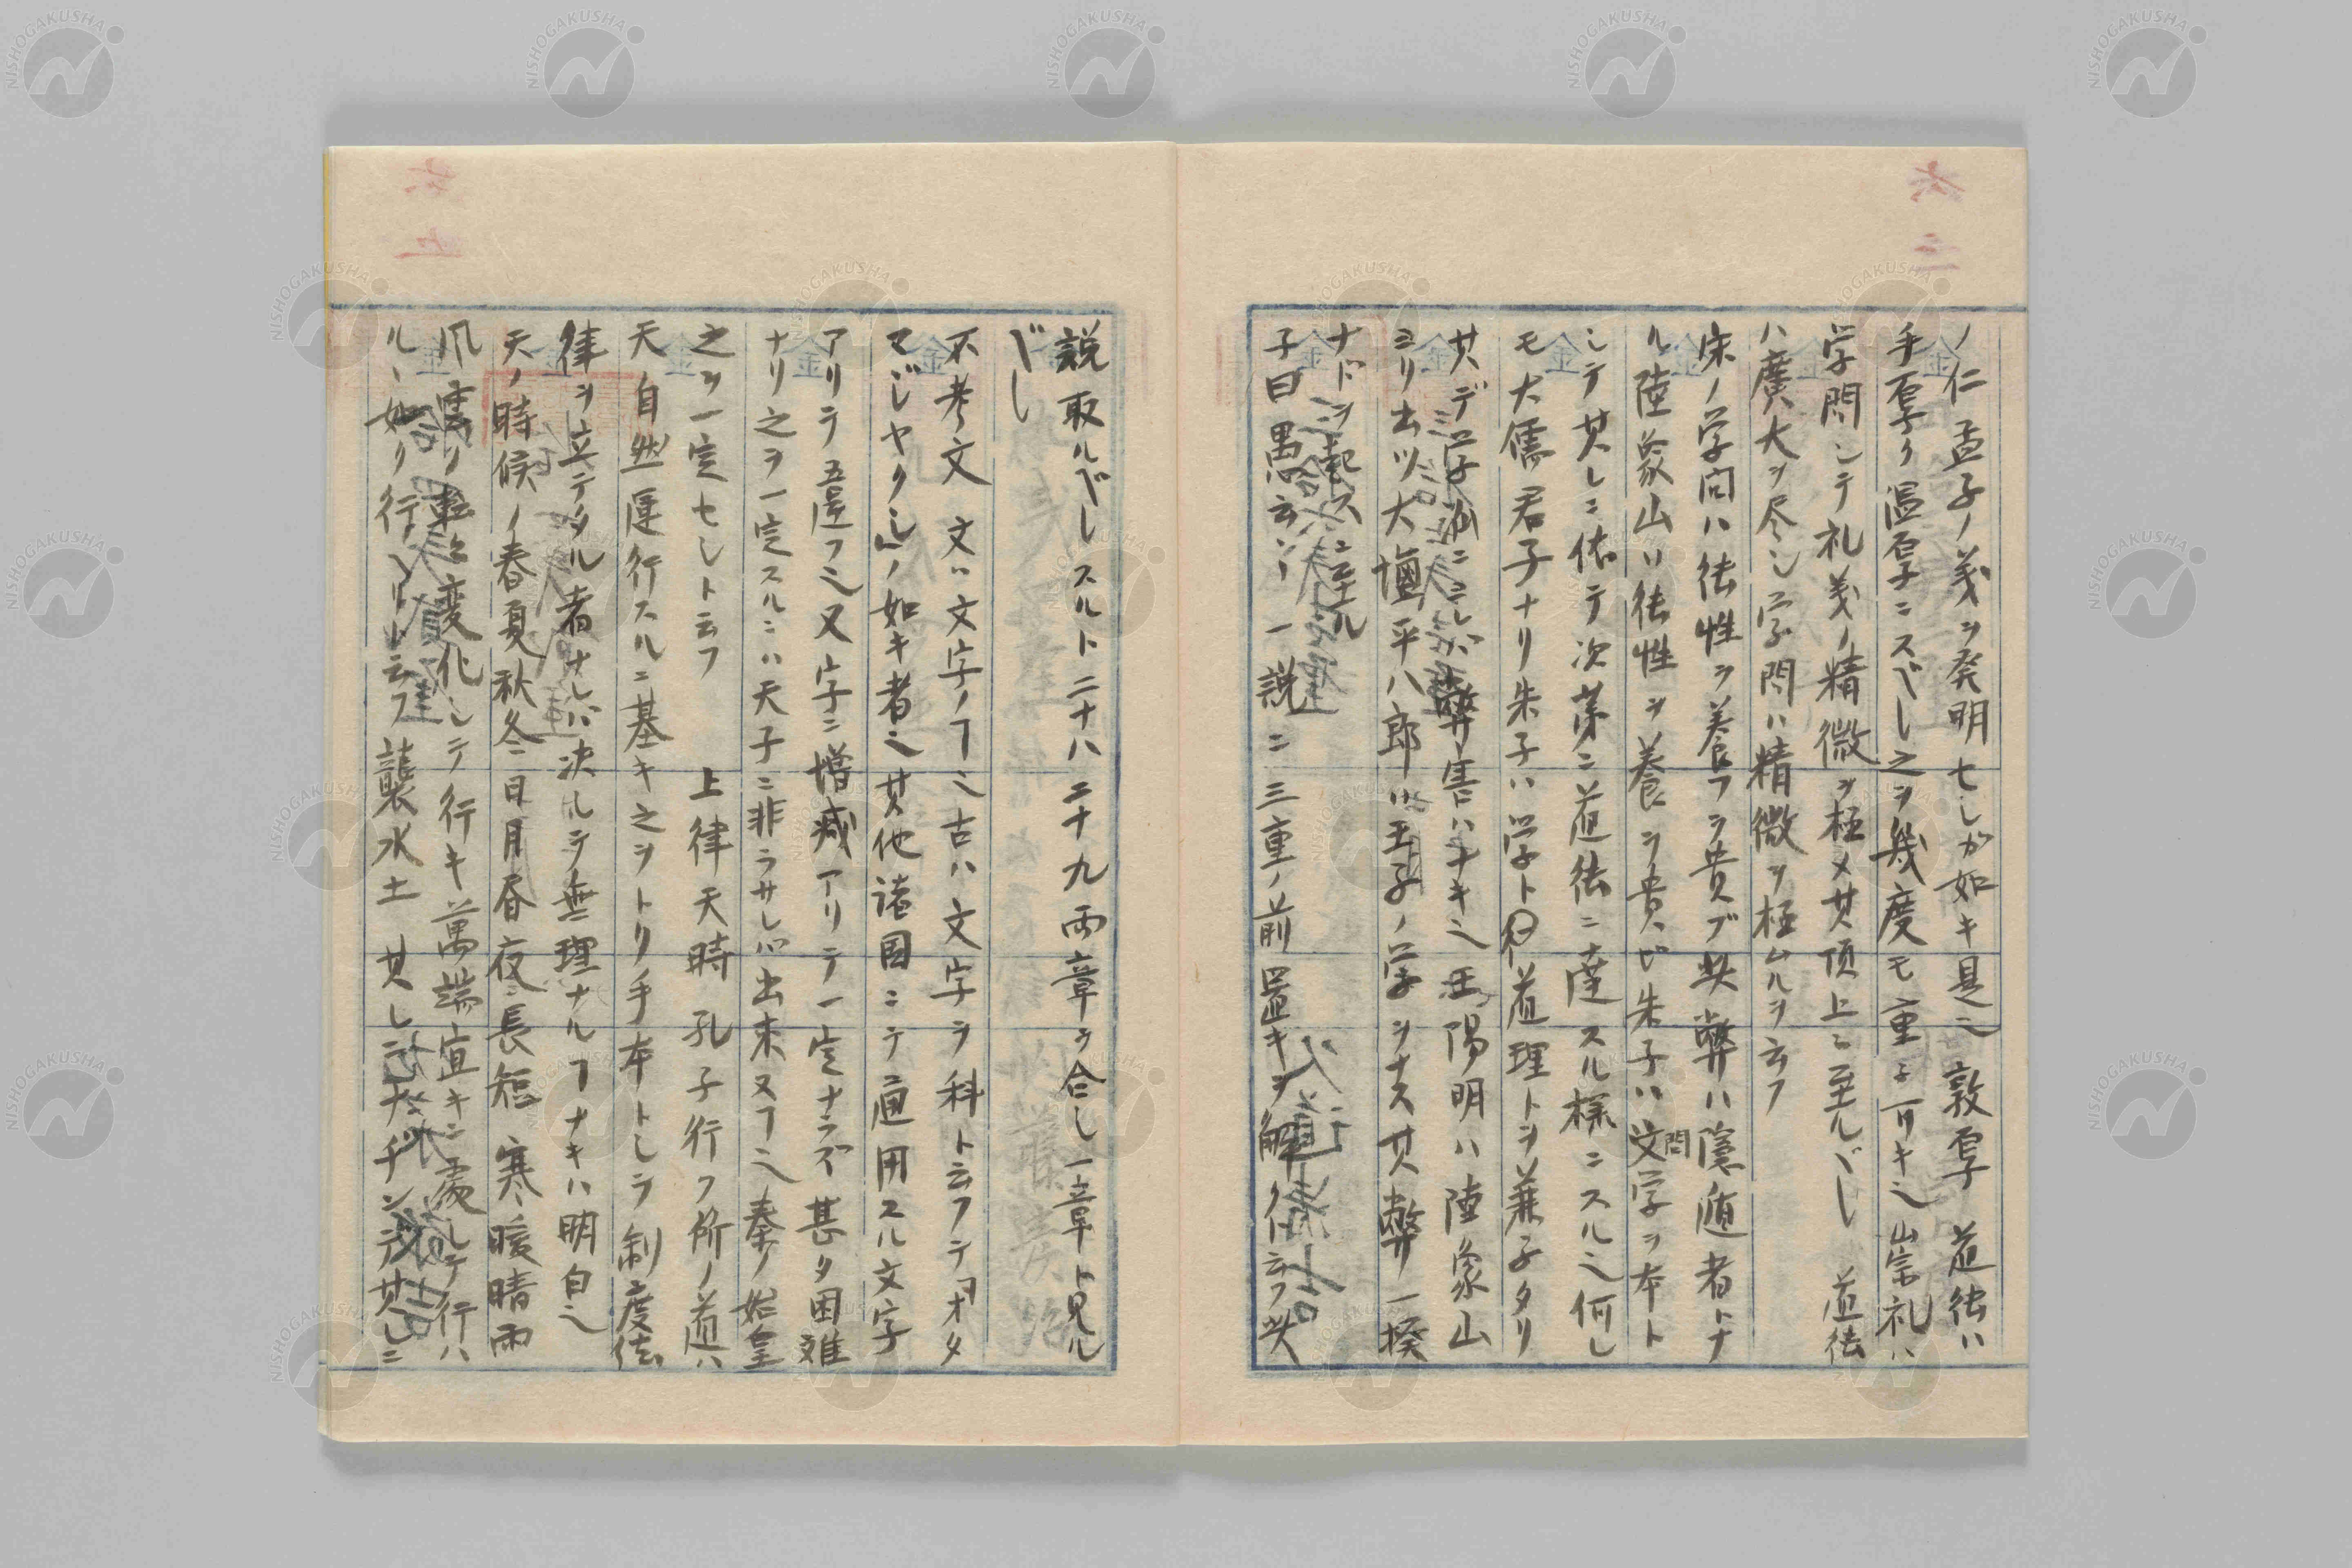 ノ仁孟子ノ義ヲ発明セしガ如キ是ニ敦厚道徳ハ
手厚ク温厚ニスベし之ヲ幾度モ重子可キ之崇礼ハ
学問シテ礼義ノ精微ヲ極メ其頂上ニ至ルベし 道徳
ハ廣大ヲ尽シ学問ハ精微ヲ極ムルヲ云フ
宋ノ学问ハ徳性ヲ養フヲ貴ブ其弊ハ隠遁者トナ
ル陸象山ハ徳性ヲ養ヲ貴ビ朱子ハ文学ヲ本ト
問
シテ其レニ依テ次第ニ道徳ニ達スル様ニスル之何レ
モ大儒君子ナリ朱子ハ学ト道理トヲ兼子タリ
其デ学派ニヨレバ弊害ハナキ之王陽明ハ陸象山
ヨリ出ツ大塩平八郎ハ王子ノ学ヲナス其弊一揆
ナドヲ起スニ至ル
子曰愚云々 一説ニ三重ノ前置キヲ解クト云フ其
説取ルベしスルト二十八二十九両章ヲ合し一章ト見ル
べし
不考文 文ハ文字ノヿ之古ハ文字ヲ科ト云フテヨオタ
マジヤクし」ノ如キ者之其他諸国ニテ通用スル文字
アリテ互ニ違フ之又字ニ増減アリテ一定ナラズ甚タ困難
ナリ之ヲ一定スルニハ天子ニ非ラサレバ出来ヌヿ之秦ノ始皇
之ヲ一定セしト云フ 上律天時 孔子行フ所ノ道ハ
天ノ自然運行スルニ基キ之ヲトリ手本トしテ制度法
律ヲ立テタル者ナレバ決ルテ無理ナルヿナキハ明白之
天ノ時候ノ春夏秋冬日月昼夜長短寒暖晴雨
風雲リ転々変化しテ行キ萬端宜キニ處しテ行ハ
ルヽ如ク行ヘリト云フ 襲水土 其レニチナンデ其レニ